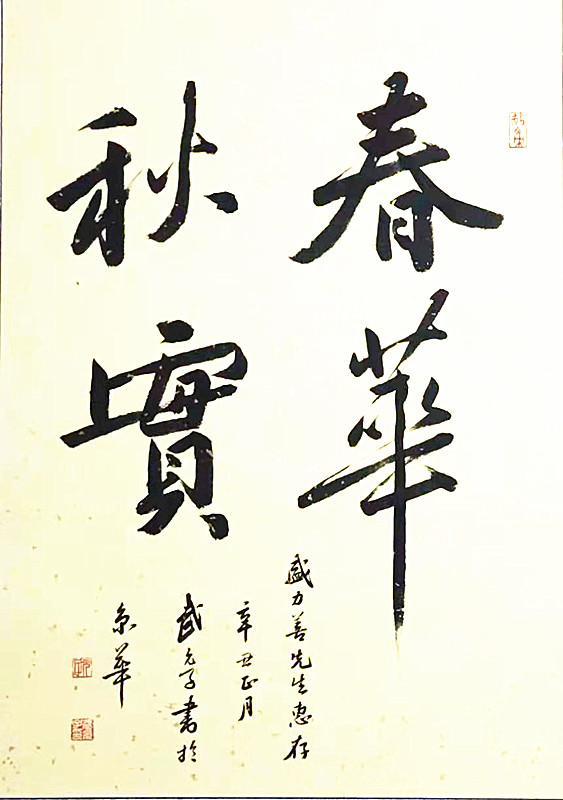 春華
秋實
盛力善先生惠存
辛丑正月
武允子書於
京華